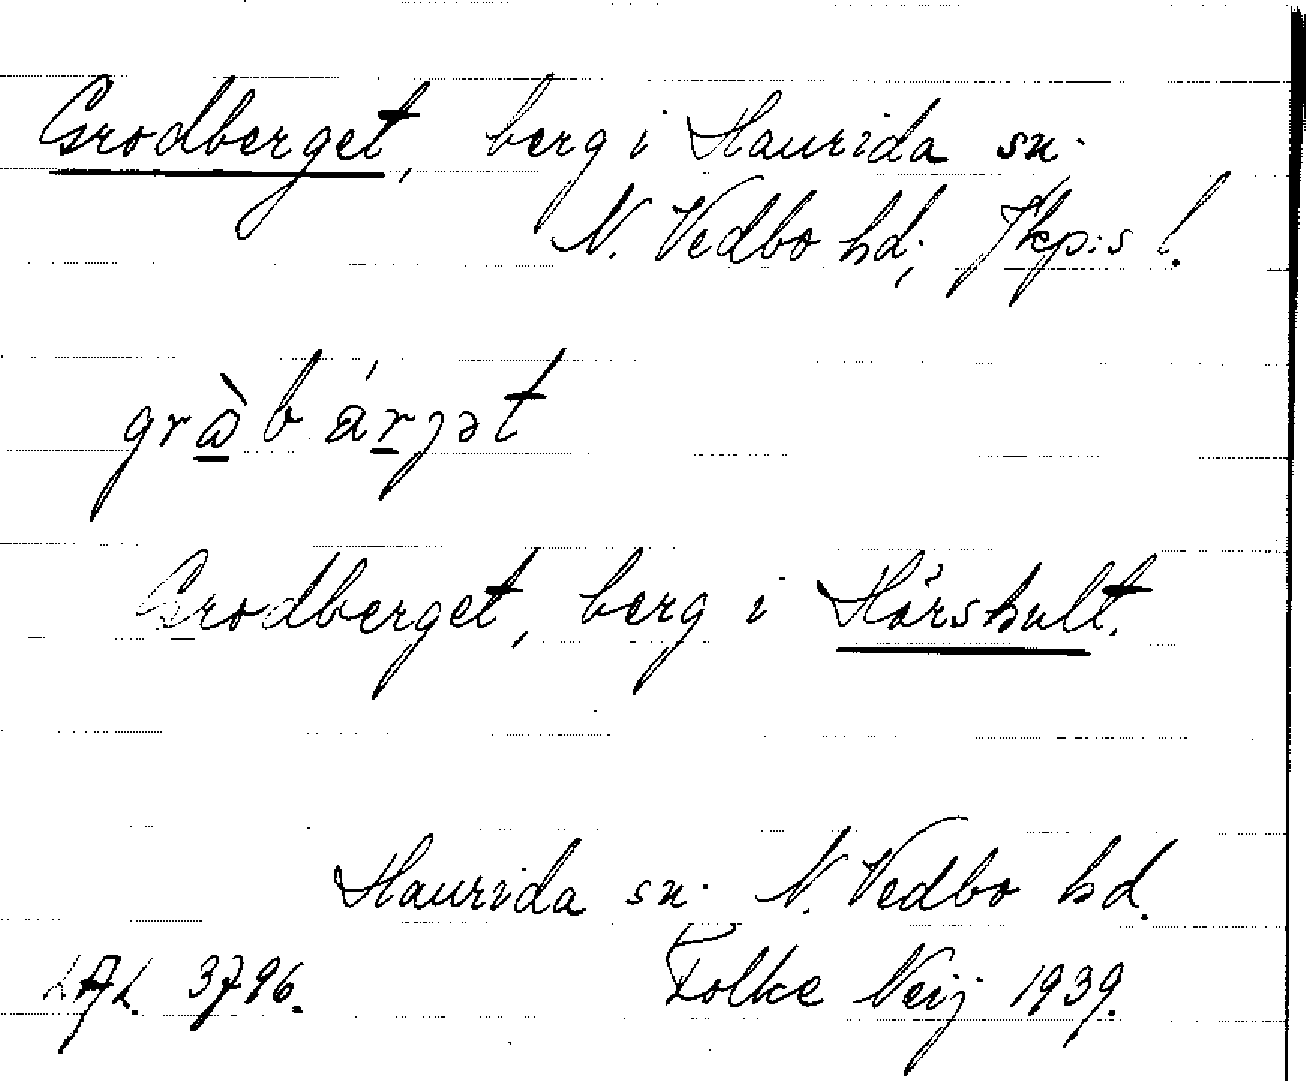 Grodberget, berg i Haurida sn.
N. Vedbo hd; Jkp:s l.
grὼb árjət
Grodberget, berg i Hårshult.
Haurida sn. N. Vedbo hd.
LAL. 3796. Folke Neij 1939.